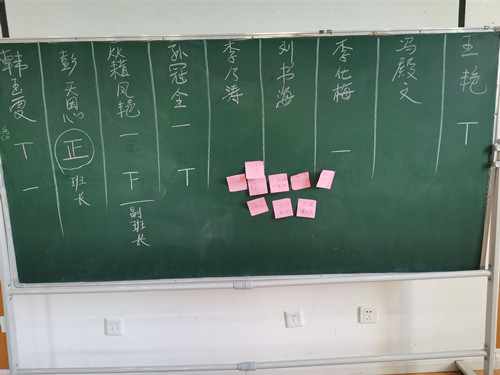 王艳
丅
冯殿文
李化梅
一
刘书海
李乃涛
孙冠全
一
丅
籍凤艳
一
下
副班长
彭天恩
正
班长
韩
丅
一